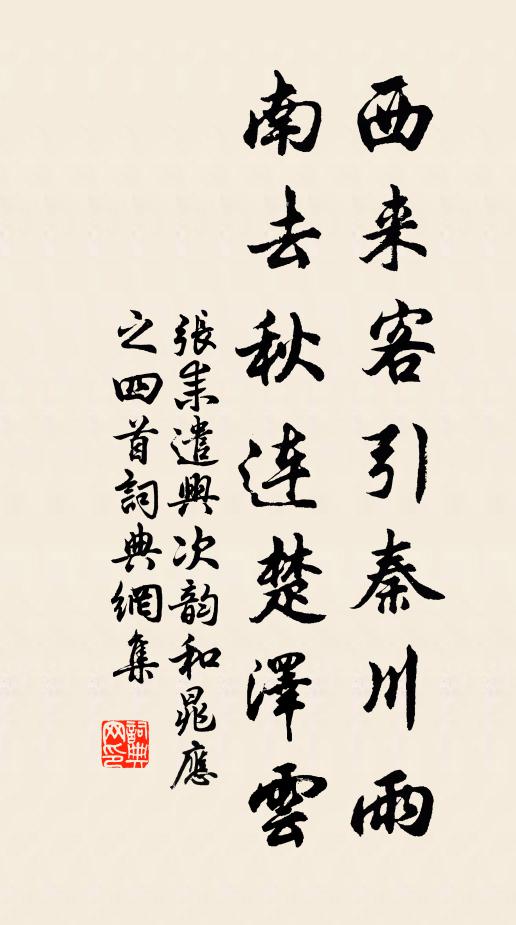 西来客引秦川雨
南去秋连楚澤雲
張耒遣興次韵和晁應
之四首詞典網集
詞典网印